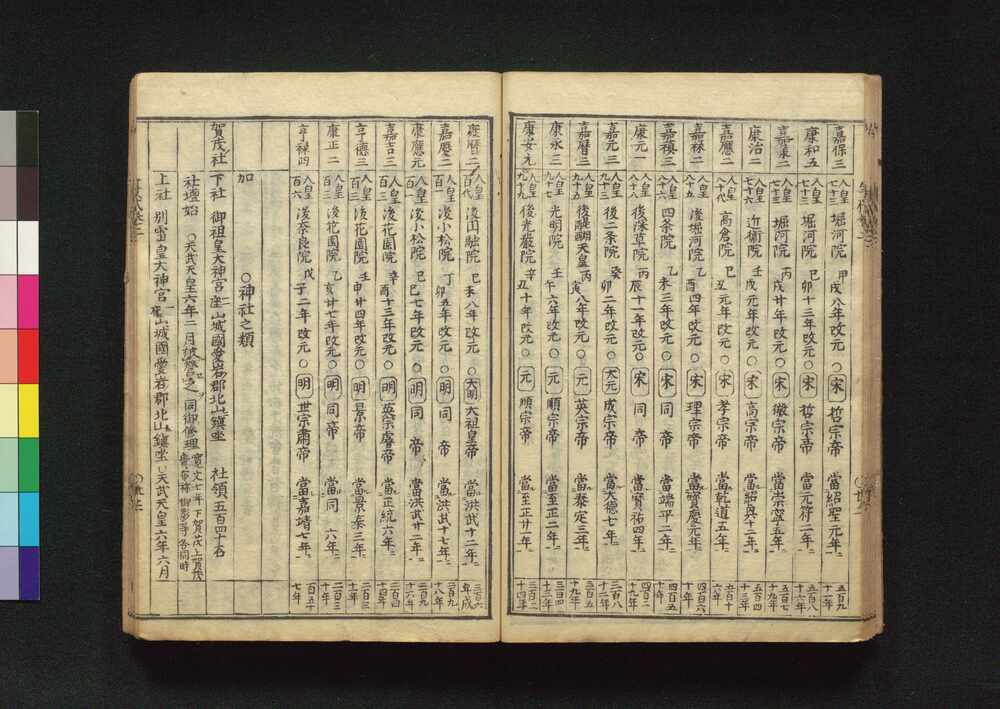 嘉保三 人皇七十三 堀河院 甲戌八年改元 ○ 宋 哲宗帝 當紹聖元年ニ 五百九十二年
康和五 人皇七十三 堀河院 巳卯十三年改元 ○ 宋 哲宗帝 當元符二年ニ 五百八十六年
嘉承二 人皇七十三 堀河院 丙戌廿年改元 ○ 宋 徽宗帝 當崇寧五年ニ 五百七十九年
康治二 人皇七十五 近衛院 壬戌元年改元 ○ 宋 高宗帝 當紹興十二年ニ 五百四十三年
嘉應二 人皇八十代 高倉院 巳丑元年改元 ○ 宋 孝宗帝 當乾道五年ニ 五百十六年
嘉禄二 人皇八十五 後堀河院 乙酉四年改元 ○ 宋 理宗帝 當寳慶元年ニ 四百六十年
嘉禎三 人皇八十六 四条院 乙未三年改元 ○ 宋 同帝 當端平二年ニ 四百五十年
康元一 人皇八十八 後深草院 丙辰十一年改元 ○ 宋 同帝 當寳祐四年ニ 四百二十九年
嘉元三 人皇九十三 後二条院 癸卯二年改元 ○ 大元 成宗帝 當大德七年ニ 三百八十二年
嘉暦三 人皇九十五 後醍醐天皇 丙寅八年改元 ○ 元 英宗帝 當泰定三年ニ 三百五十九年
康永三 人皇九十七 光明院 壬午六年改元 ○ 元 順宗帝 當至正二年ニ 三百四十三年
康安元 人皇九十九 後光嚴院 辛丑十年改元 ○ 元 順宗帝 當至正廿一年ニ 三百二十四年
康暦二 人皇百代 後円融院 巳未八年改元 ○ 大明 大祖皇帝 當洪武十二年ニ 三百六年成
嘉慶二 人皇百一 後小松院 丁卯五年改元 ○ 明 同帝 當洪武十七年ニ 二百九十八年
康應元 人皇百一 後小松院 巳巳七年改元 ○ 明 同帝 當洪武廿二年ニ 二百九十六年
嘉吉三 人皇百三 後花園院 辛酉十三年改元 ○ 明 英宗睿帝 當正統六年ニ 二百四十四年
亨德三 人皇百三 後花園院 壬申廿四年改元 ○ 明 景帝 當景泰三年ニ 二百三十年
康正二 人皇百三 後花園院 乙亥廿七年改元 ○ 明 同帝 當同六年ニ 二百三十年
亨禄四 人皇百六 後奈良院 戊子二年改元 ○ 明 世宗肅帝 當嘉靖七年ニ 百五十七年
○神社之類
加
賀茂社 下社 御祖皇大神宮二座 山城國愛宕郡北山ニ鎮坐 社領五百四十石
社壇始 ○天武天皇六年二月 同御修理 寛文七年下賀茂上賀茂
上社 別雷皇大神宮一座 山城國愛岩郡北山ニ鎮坐 ○天武天皇六年六月